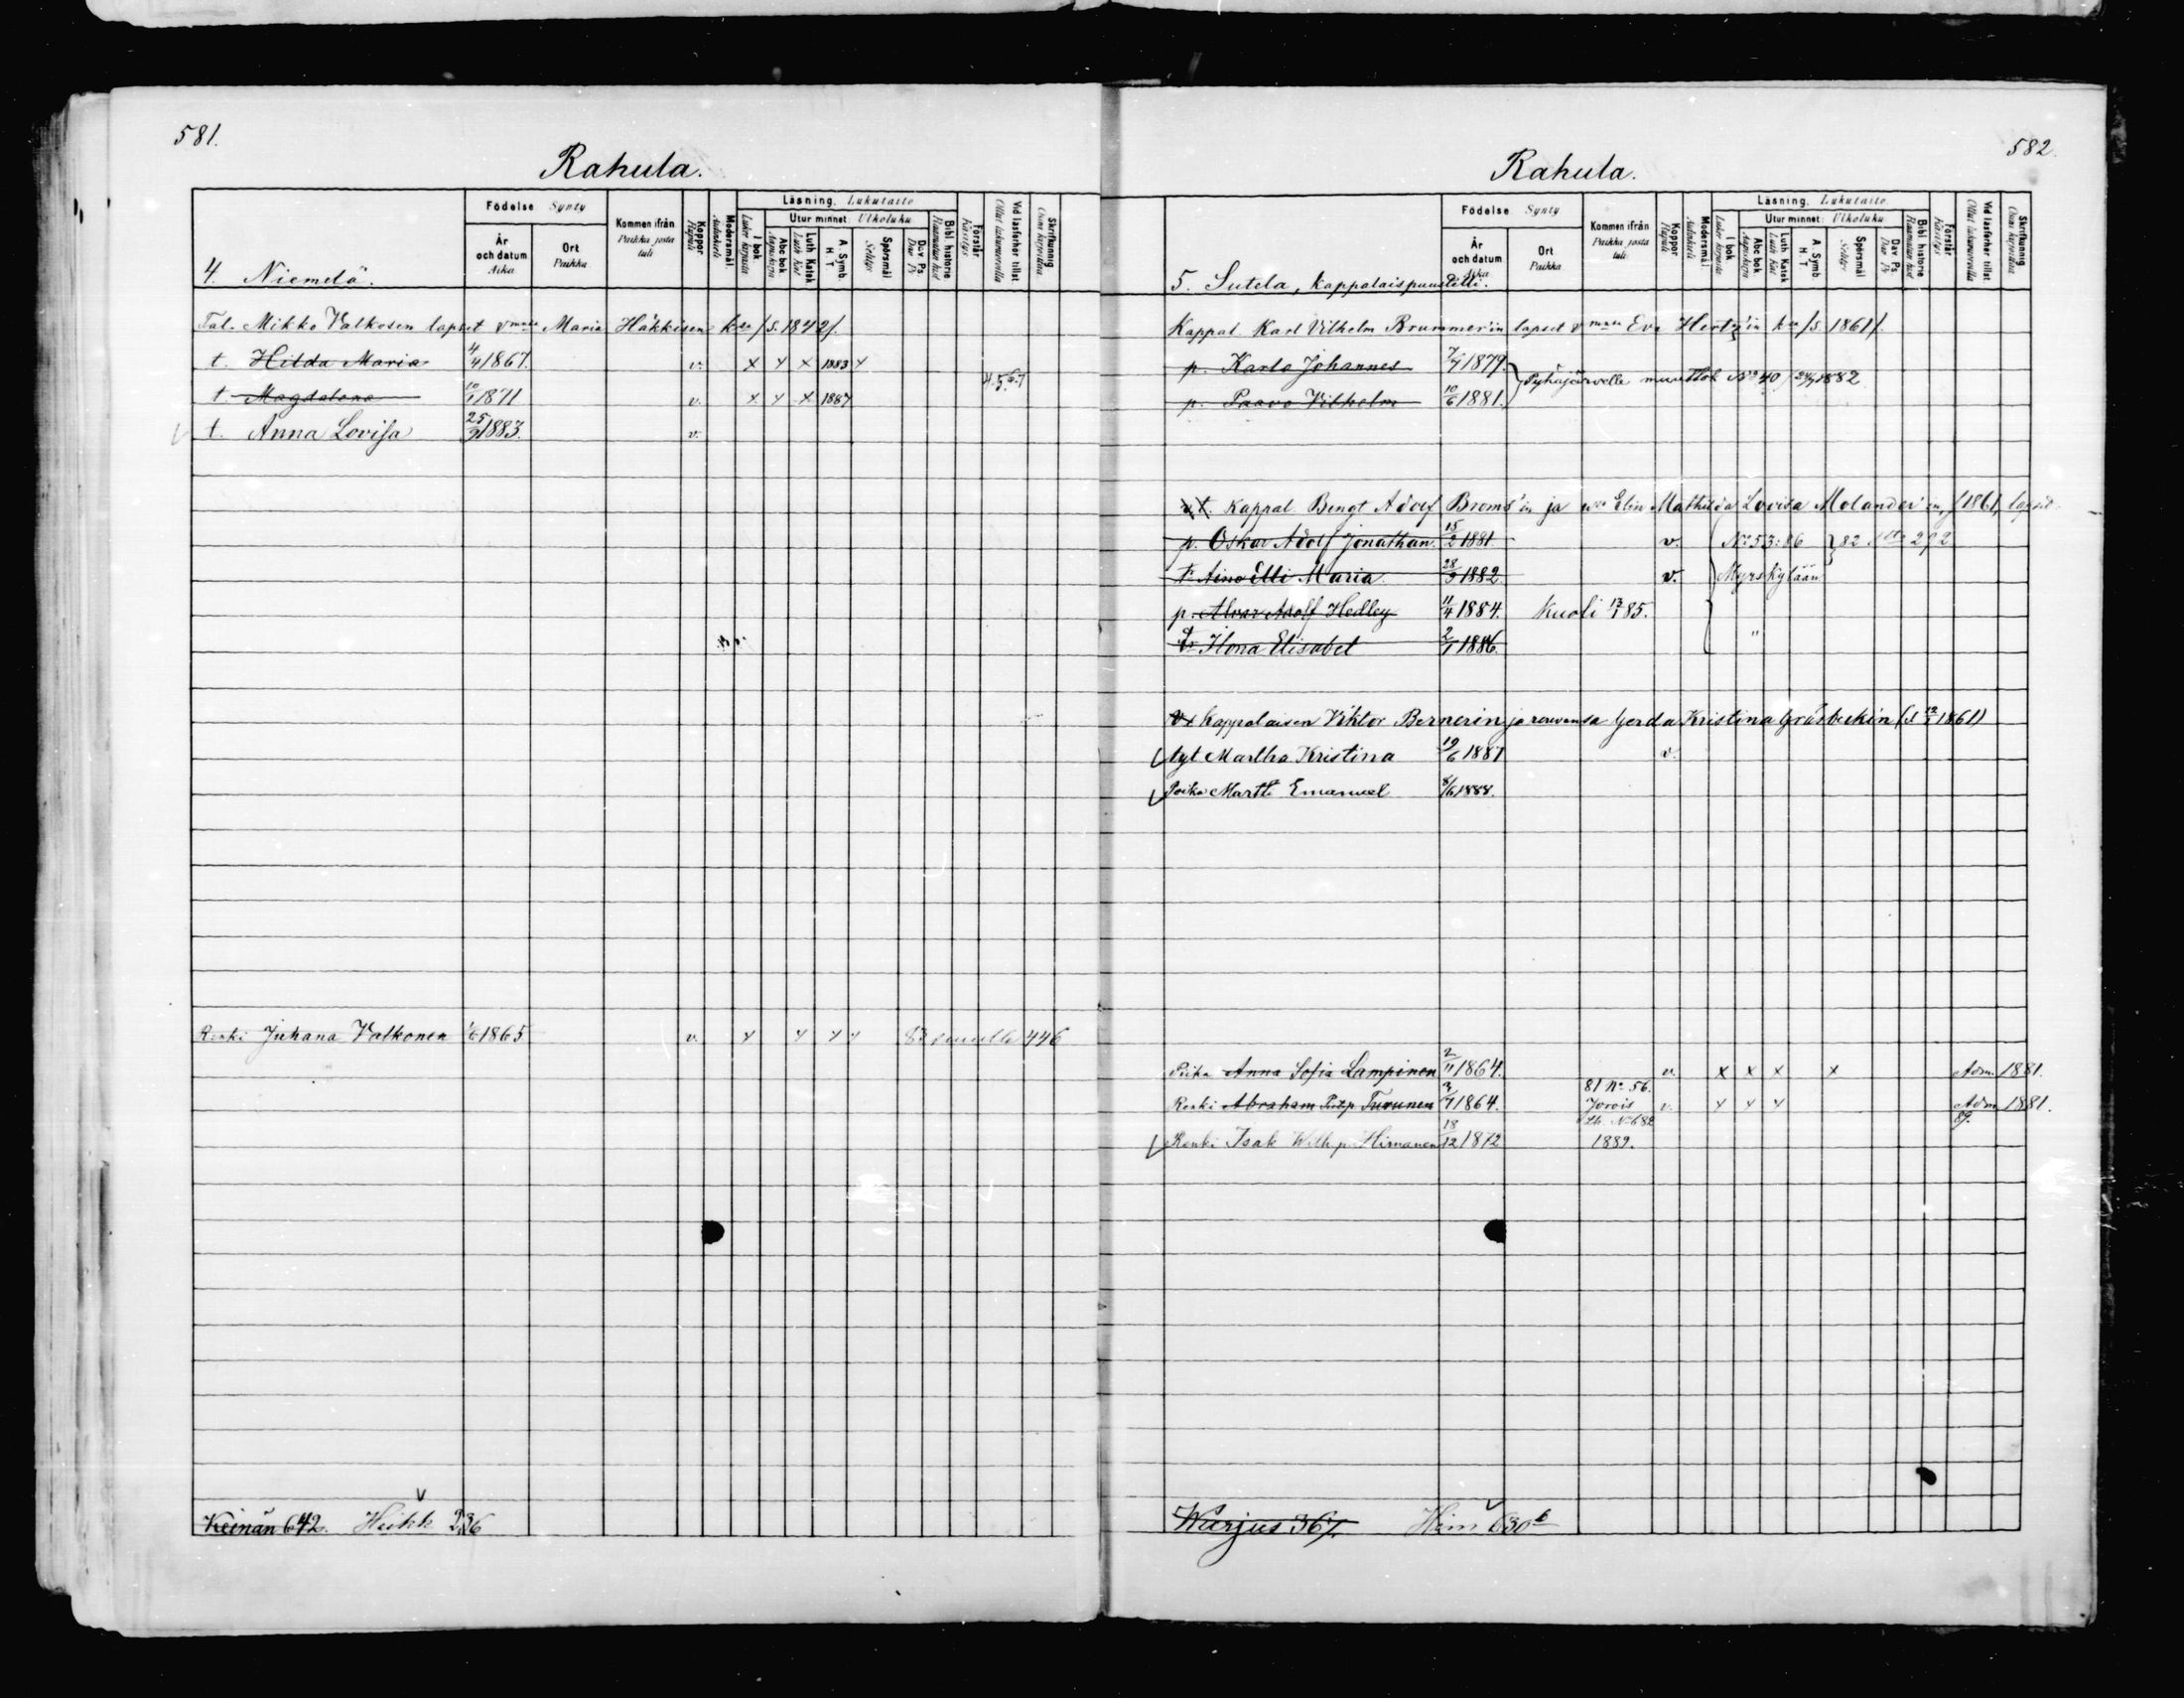 581.
Rahula.
4. Niemelä.
Födelse Synty
År och datum Aika
Ort Paikka
Kommen ifrån Paikka josta tuli
Koppor Rupuli
Modersmål
Läsning. Lukutaito
I bok Luku kirjasta
Utur minnet: Ulkoluku
Abc bok Aapiskirja
Luth. Katek Luth. Kat
A. Symb. H. T
Spörsmål Selitys
Dav. Ps Dav. Ps
Bibl. historie
Förstår Käsitys
Vid läsförhör tillst. Ollut lukuvuorolla
Skrifkunnig Osaa kirjoittaa
Tal. Mikko Valkosen lapset v mna Maria Häkkisen kssa /s. 1842/.
t. Hilda Maria 4/4 1867. v. x x x 1883 x
t. Magdalena 10/1 1871 v. x x x 1887 4.5.6.7
t. Anna Lovisa 25/9 1883. v.
Renki Juhana Valkonen 1/6 1865 v. x x x x 83 446
Keinän 642. Heikk 236
582.
Rahula.
5. Sutela, kappalaispuustelli.
Födelse Synty
År och datum Aika
Ort Paikka
Kommen ifrån Paikka josta tuli
Koppor Rupuli
Modersmål
Läsning. Lukutaito
I bok Luku kirjasta
Utur minnet: Ulkoluku
Abc bok Aapiskirja
Luth. Katek Luth. Kat
A. Symb. H. T
Spörsmål Selitys
Dav. Ps Dav. Ps
Bibl. historie
Förstår Käsitys
Vid läsförhör tillst. Ollut lukuvuorolla
Skrifkunnig Osaa kirjoittaa
Kappal. Karl Vilhelm Brummer'in lapset v mna Eva Hertz'in kssa /s. 1861/.
p. Karlo Johannes 7/4 1879.
Pyhäjärvelle muuttok No 40 24/4 1882
p. Paavo Vilhelm 10/6 1881.
v. t. Kappal. Bengt Adolf Broms'in ja Elin Mathilda Lovisa Molander'in, /1861, lapset
p. Oskar Adolf Jonathan. 15/2 1881. v. No 53: 86 82 292
t. Aino Elli Maria 28/9 1882 v. Myrskylään
p. Alvar Adolf Hedley 11/4 1884. Kuoli 13/1 85.
t. Ilona Elisabet 2/1 1886. "
Kappalaisen Viktor Bernerin ja rouvansa Gerda Kristina Gråsbeckin (s 12/1 1861)
tyt Martha Kristina 19/6 1887 v.
Poika Martti Emanuel 8/6 1888.
Piika Anna Sofia Lampinen 2/11 1864. v. x x x x Adm. 1881.
81 No 56.
Renki Abraham Turunen 3/7 1864. Jorois v. x x x Adm 1881.
No 682 89.
Renki Isak Wilh. p. Himanen 18/12 1872 1889.
Warjus 367. Him 630 b